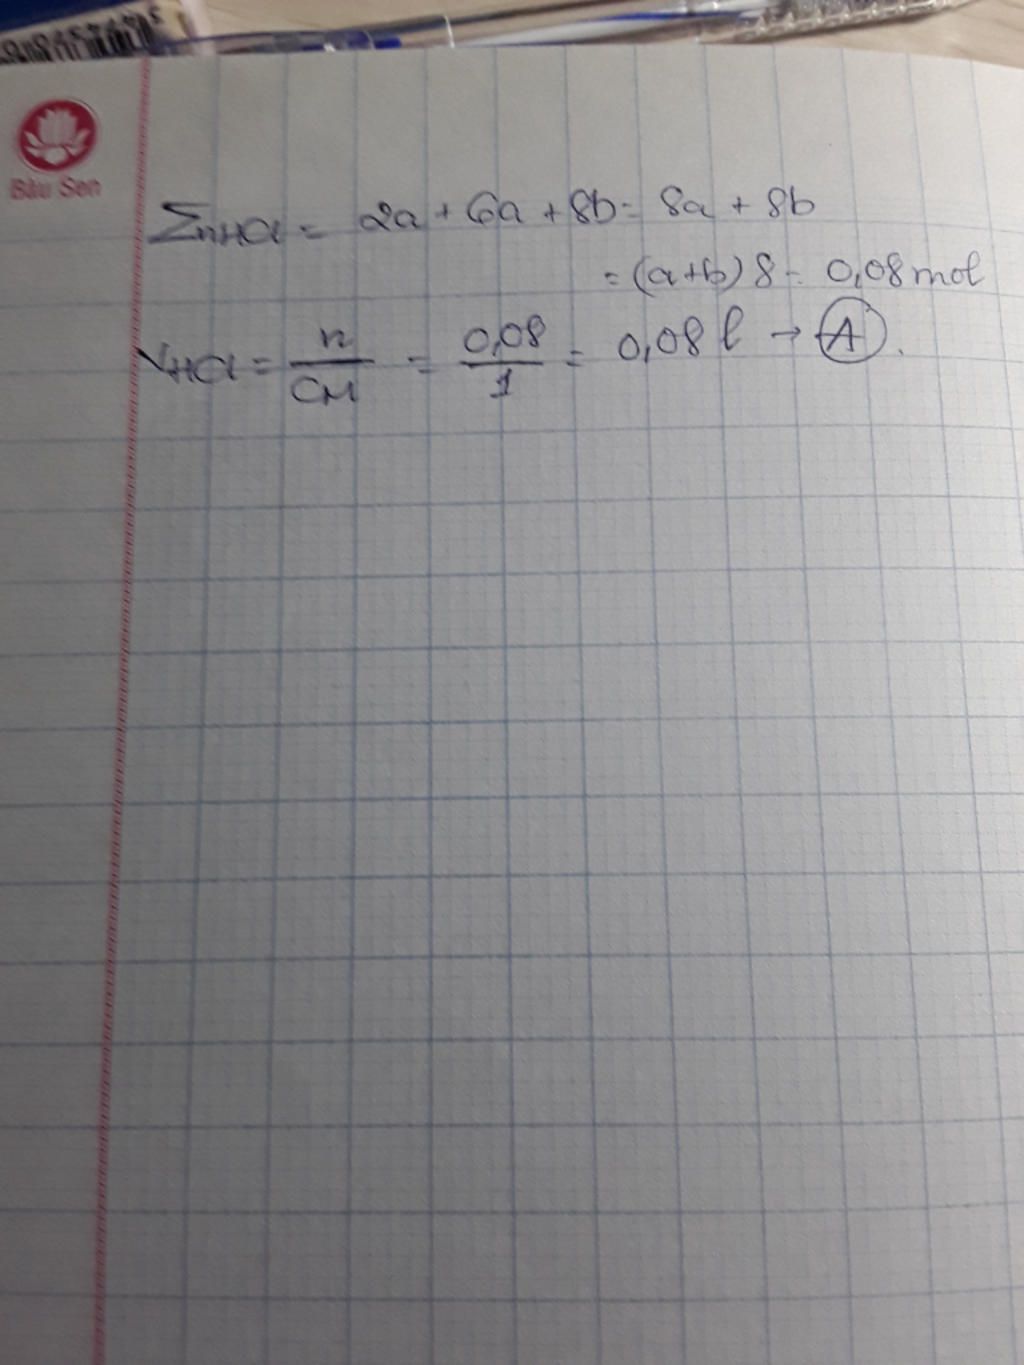 Bâu Sen
ΣnHCl = 2a + 6a + 8b = 8a + 8b
= (a+b) 8 = 0,08 mol
VHCl = n/CM = 0,08/1 = 0,08 l → A.